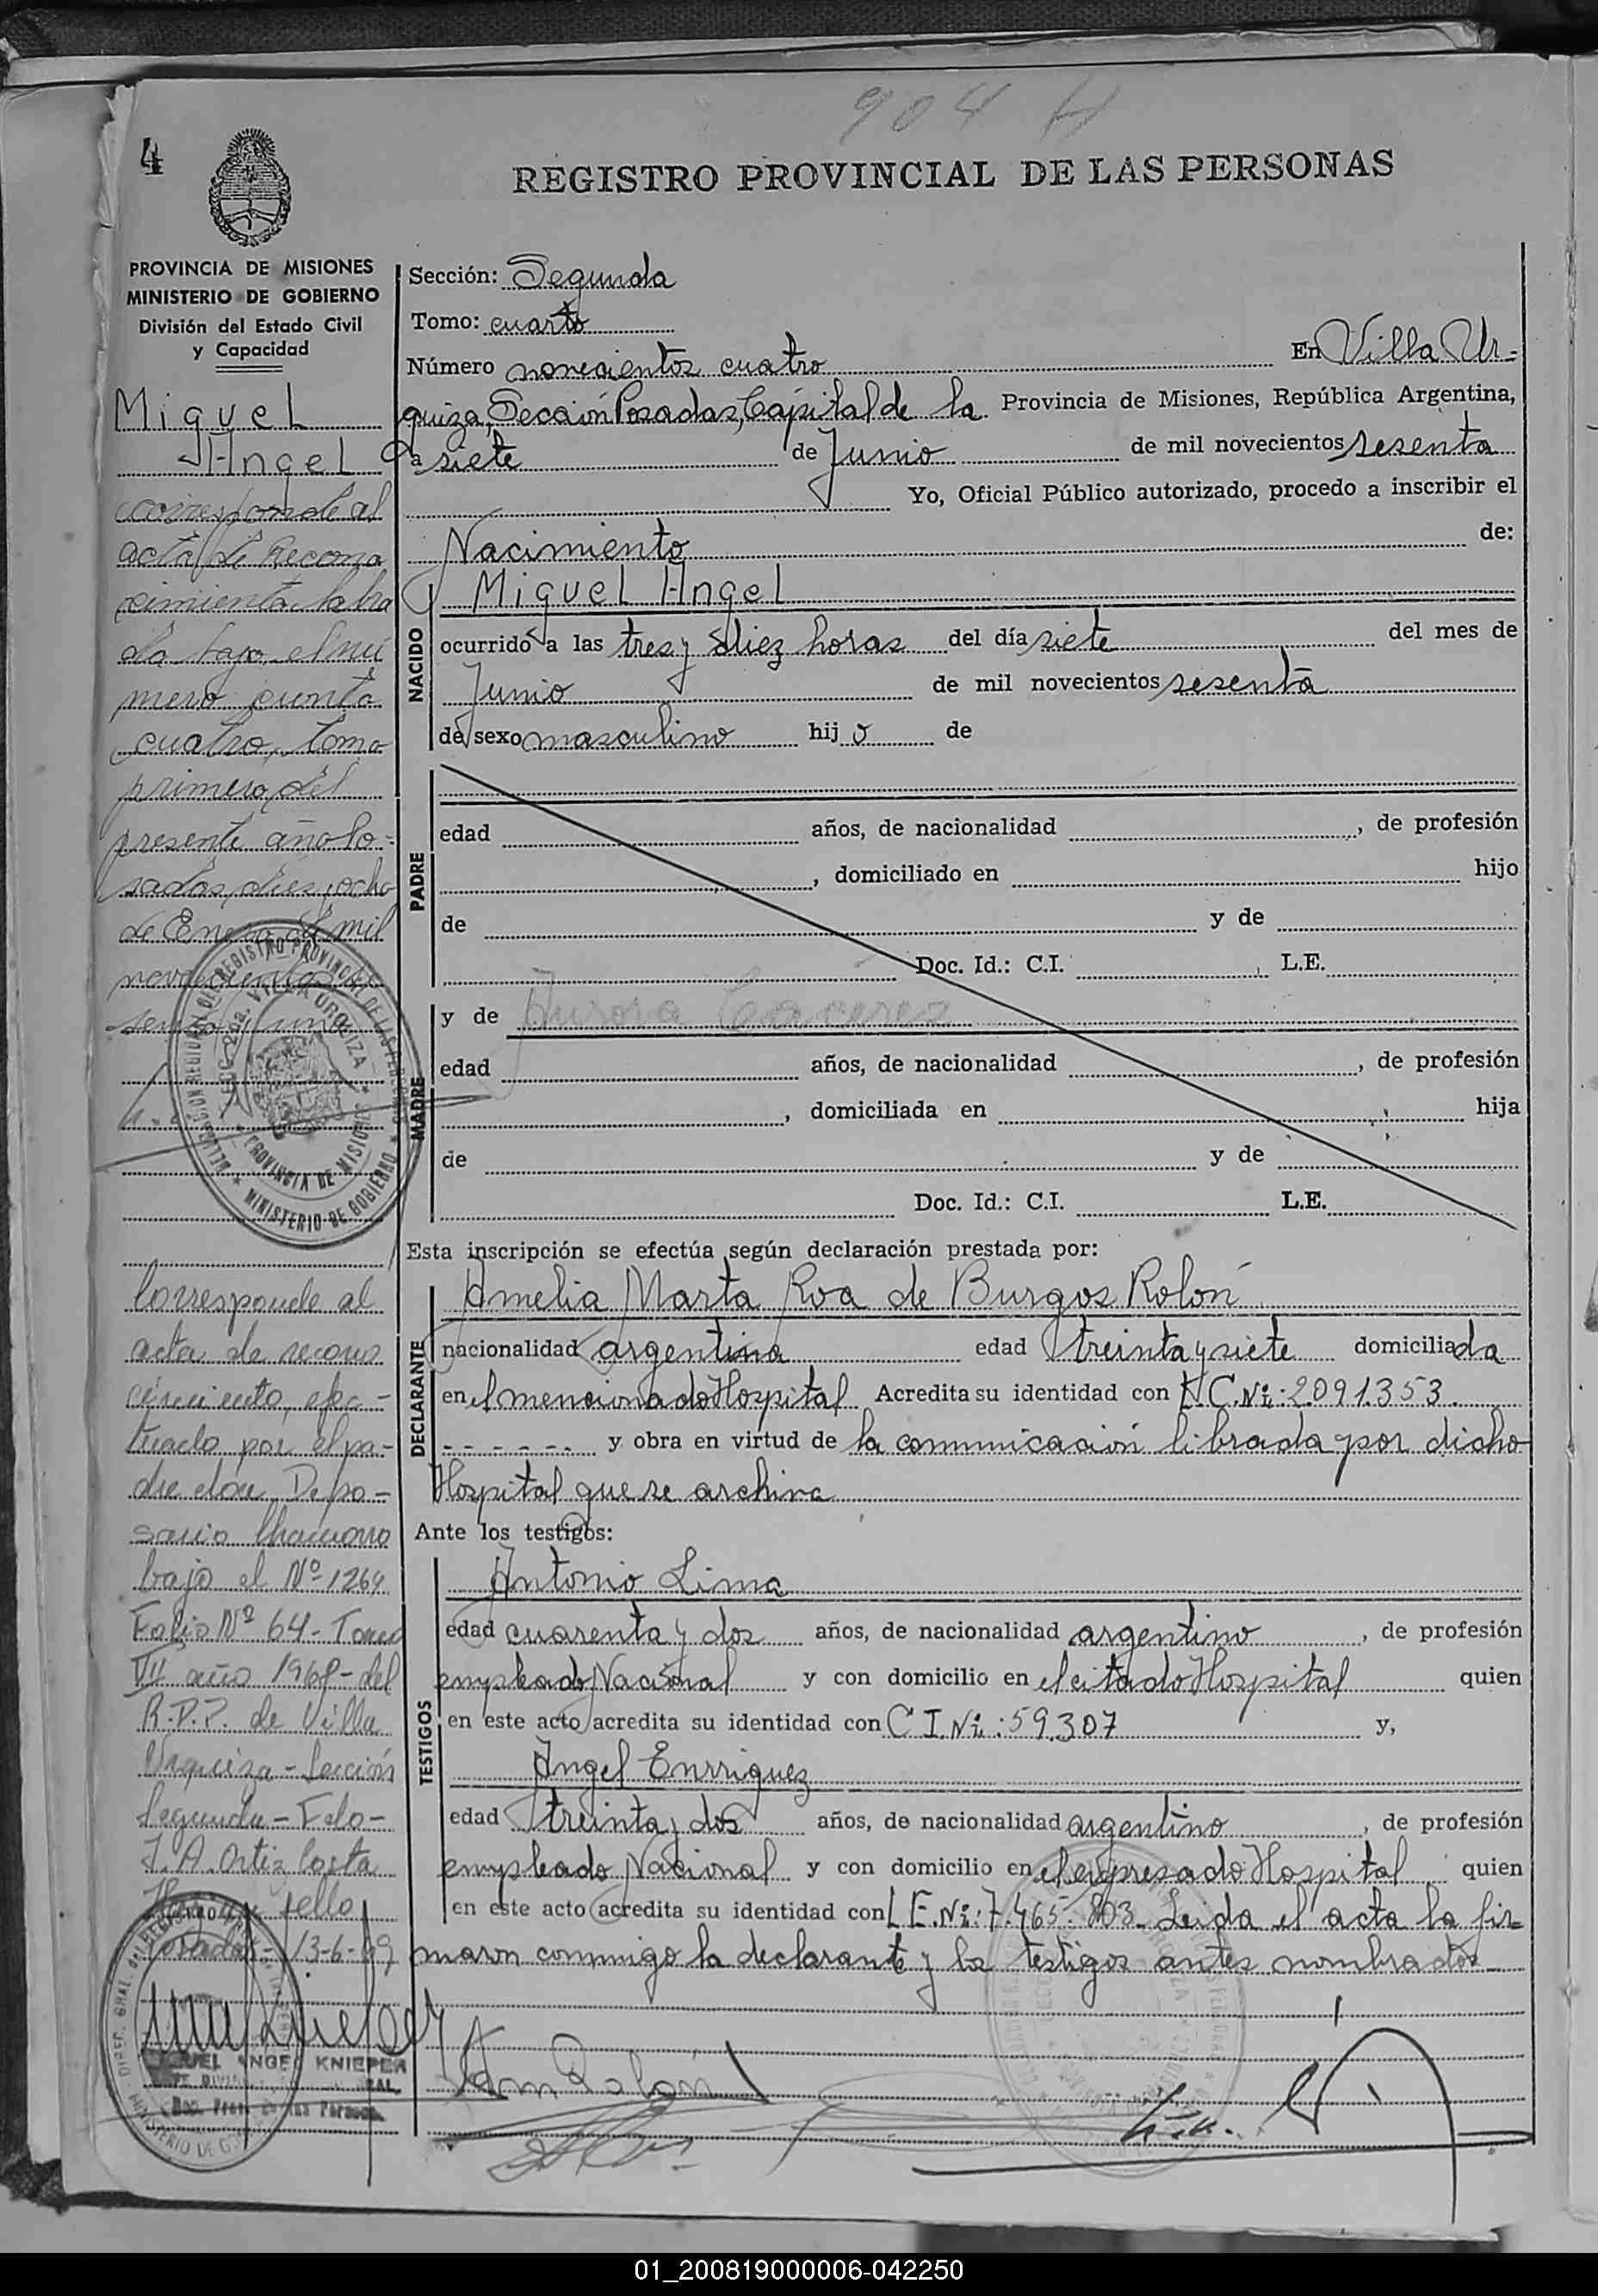 904 H
4
REGISTRO PROVINCIAL DE LAS PERSONAS
PROVINCIA DE MISIONES
MINISTERIO DE GOBIERNO
División del Estado Civil
y Capacidad
Miguel
Angel
corresponde al
acta de Recono
cimiento labra
da bajo el nú
mero ciento
cuatro, tomo
primero del
presente año Po-
sadas, diez y ocho
de Enero de mil
novecientos
sesenta y uno
Corresponde al
acta de recono
cimiento, efec-
tuado por el pa-
dre don
bajo el Nº 1264
Folio Nº 64 - Tomo
VII año 1968 - del
R.P.P. de Villa
Urquiza - Sección
Segunda - Fdo-
J. A. Ortiz Costa
Hay un sello
Posadas - 13-6-69
MIGUEL ANGEL KNIEPER
Sección: Segunda
Tomo: cuarto
Número novecientos cuatro En Villa Ur-
quiza, Sección Posadas, Capital de la Provincia de Misiones, República Argentina,
a siete de Junio de mil novecientos sesenta
Yo, Oficial Público autorizado, procedo a inscribir el
Nacimiento de:
NACIDO
Miguel Angel
ocurrido a las tres y diez horas del día siete del mes de
Junio de mil novecientos sesenta
de sexo masculino hijo de
PADRE
edad años, de nacionalidad , de profesión
, domiciliado en hijo
de y de
Doc. Id.: C.I. L.E.
MADRE
y de Aurora Caceres
edad años, de nacionalidad , de profesión
, domiciliada en hija
de y de
Doc. Id.: C.I. L.E.
Esta inscripción se efectúa según declaración prestada por:
DECLARANTE
Amelia Marta Roa de Burgos Rolón
nacionalidad argentina edad treinta y siete domiciliada
en el mencionado Hospital Acredita su identidad con L.C. Nº: 2.091.353.
- - - - - - y obra en virtud de la comunicación librada por dicho
Hospital que se archiva
Ante los testigos:
TESTIGOS
Antonio Lima
edad cuarenta y dos años, de nacionalidad argentino , de profesión
empleado Nacional y con domicilio en el citado Hospital quien
en este acto acredita su identidad con C I. Nº: 59.307 y,
Angel Enrriquez
edad treinta y dos años, de nacionalidad argentino , de profesión
empleado Nacional y con domicilio en el expresado Hospital quien
en este acto acredita su identidad con L E. Nº: 7.465.803 Leida el acta la fir-
maron conmigo la declarante y los testigos antes nombrados
01_200819000006-042250